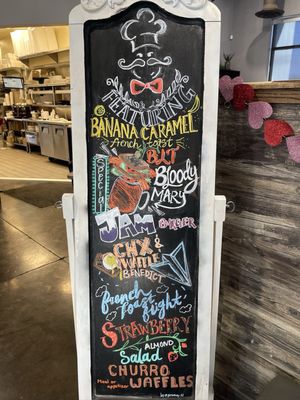 FEATURING
BANANA CARAMEL
french toast
Special
BLT
Bloody
MARY
JAM
CHX
& Waffle
BENEDICT
french
toast flight
STRAWBERRY
ALMOND
Salad
CHURRO
WAFFLES
Meal or appetizer